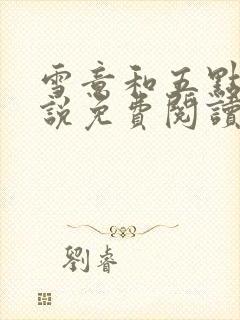 雪意和五點
説免費閱讀
劉睿